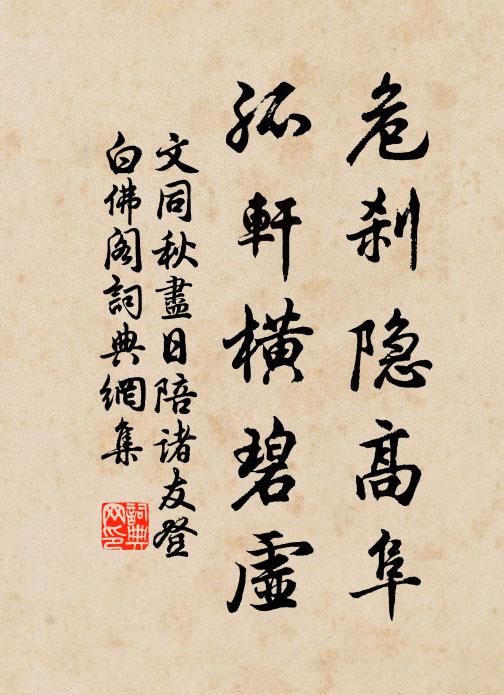 危刹隐高阜
孤軒橫碧虛
文同秋盡日陪诸友登
白佛阁詞典網集
詞典
网印